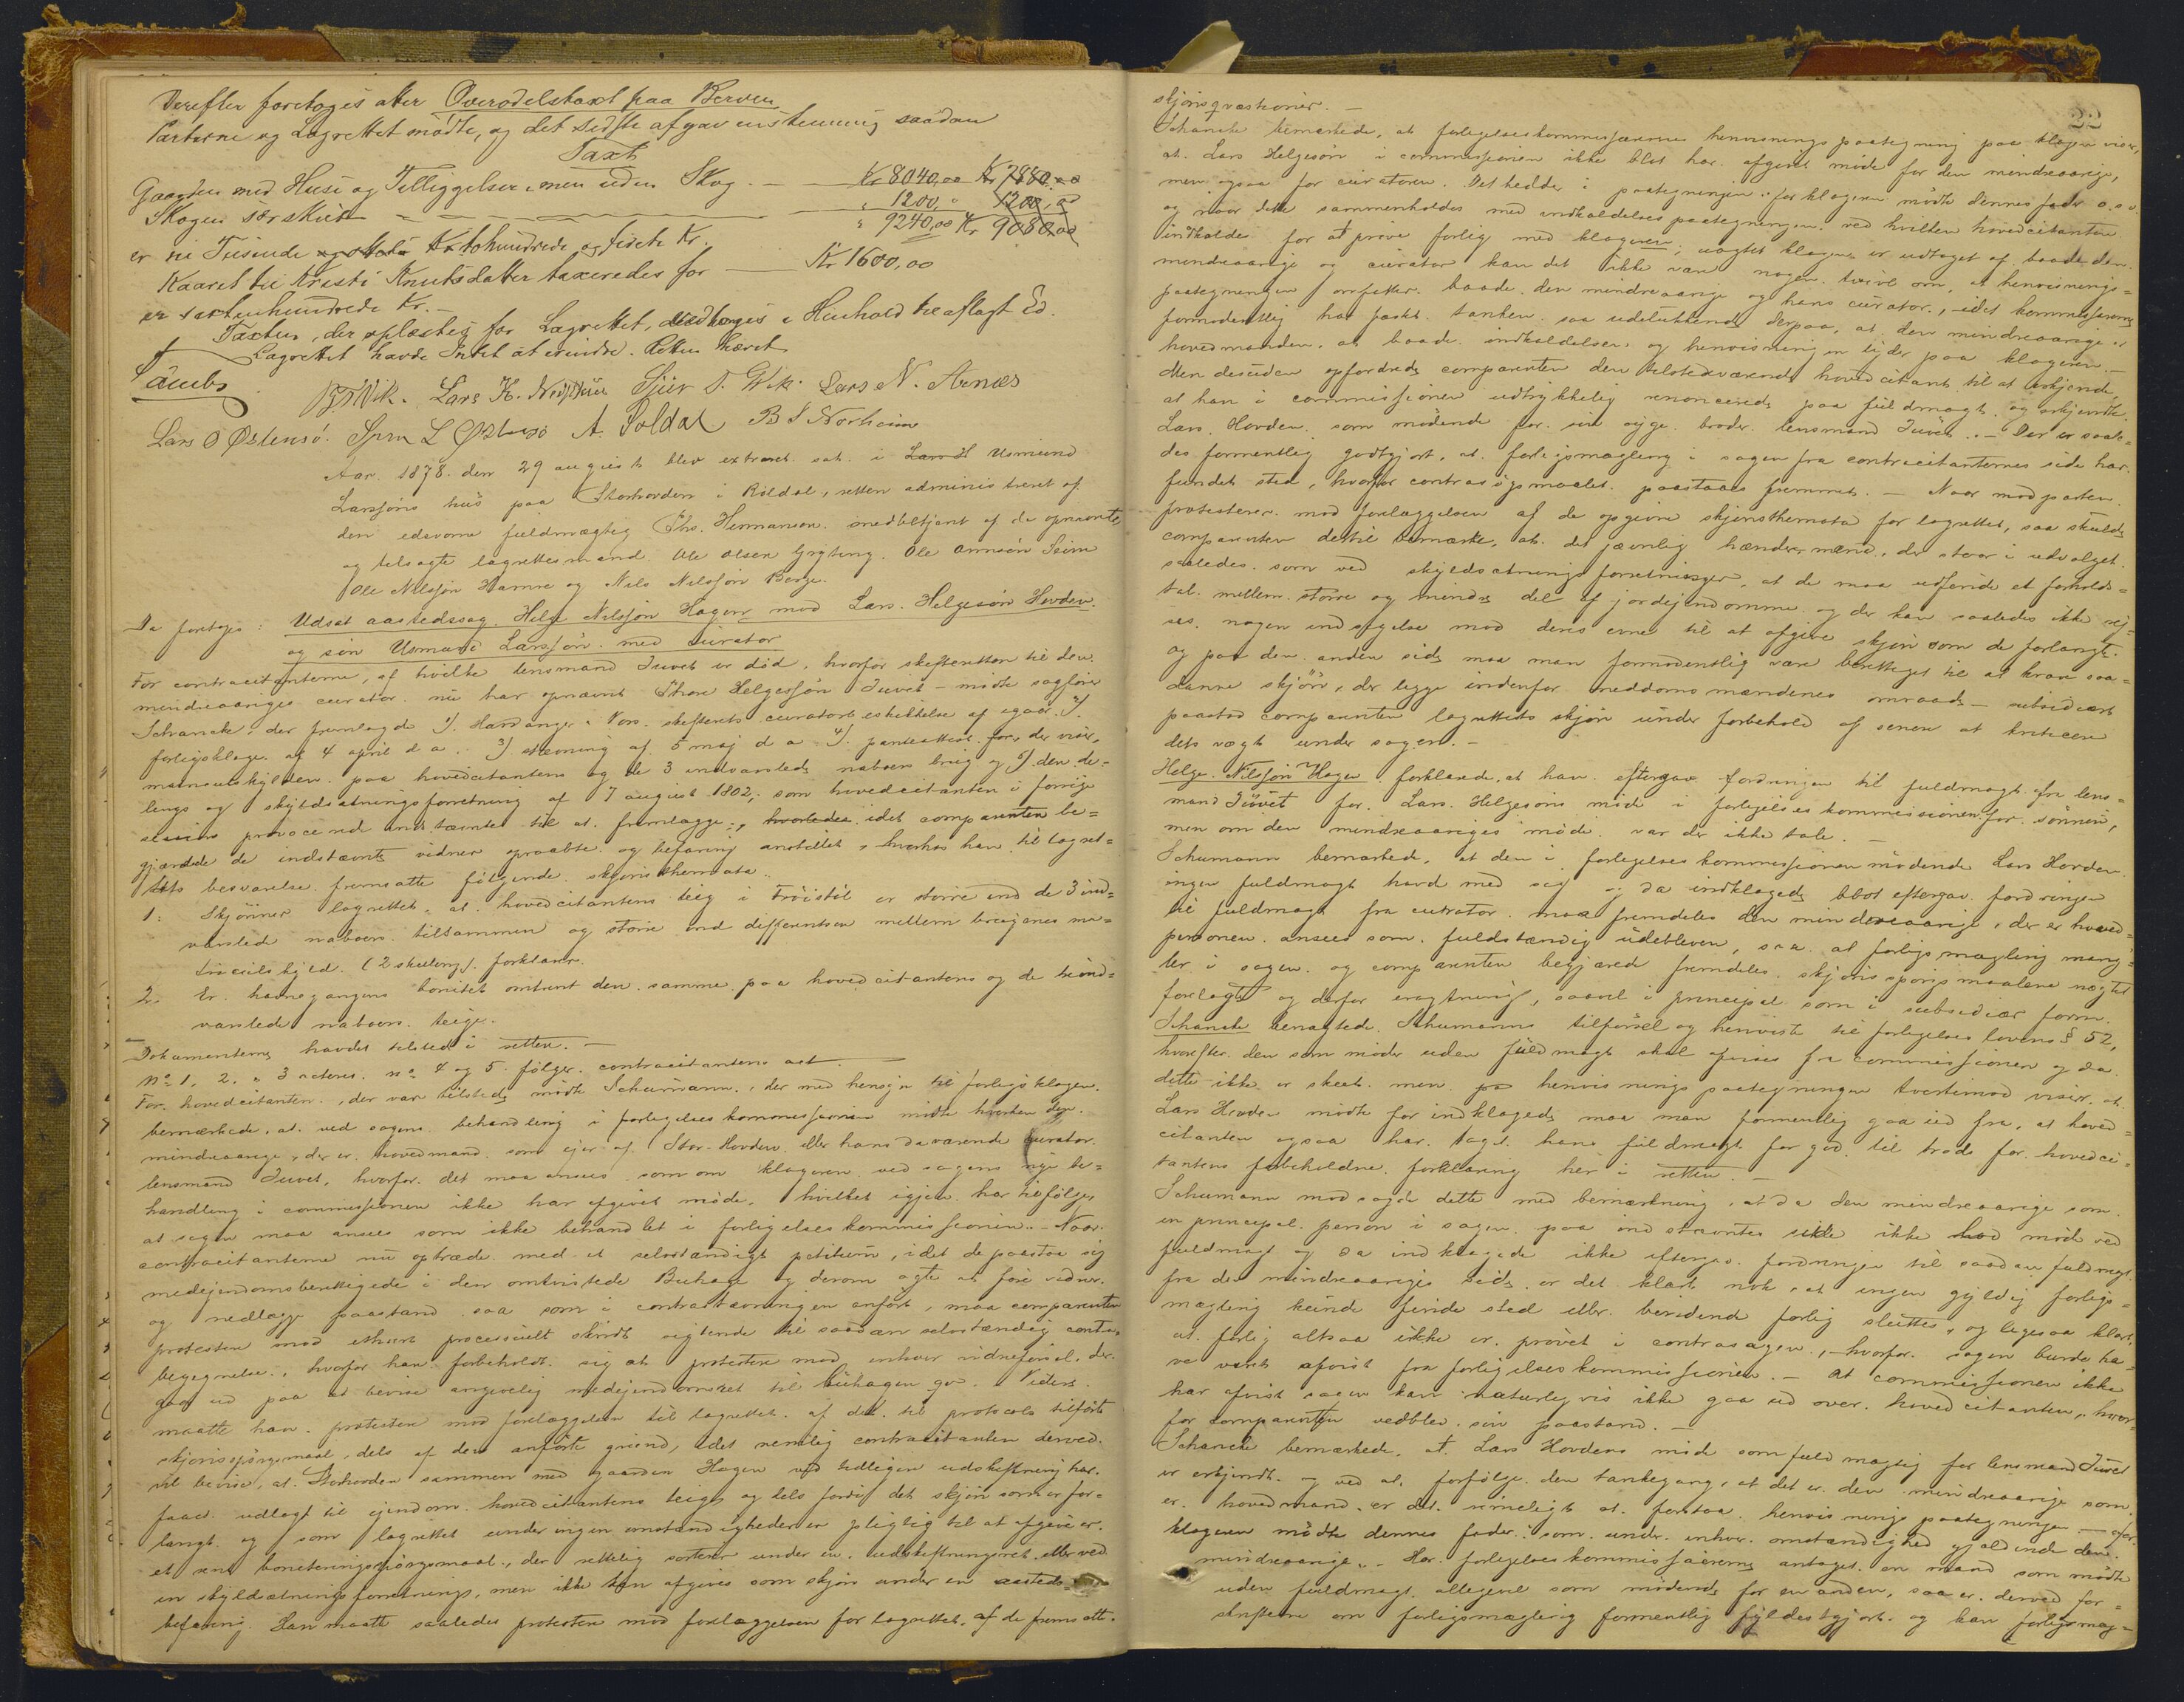 Derefter foretoges atter Overodelstaxt paa Berven
Parterne og Lagrettet mødte, og det sidste afgav enstemmig saadan
Taxt
Gaarden med Huse og Tilliggelser, men uden Skog. — Kr 8040,00 Kr 7880.00
Skogen særskilt — " 1200,00 1200,00
" 9240,00 Kr 9080.00
er ni Tusinde Kr tohundrede og firti Kr.
Kaaret til Kristi Knutsdatter taxeredes for — Kr 1600,00
er sextenhundrede Kr. —
Taxten, der oplæstes for Lagrettet, vedtoges i Henhold til aflagt Ed.
Lagrettet havde Intet at erindre. Retten hævet
Lars N. Arnæs
Lars O Østensö. A. Soldal B S Norheim
Aar 1878 den 29 august blev extraret sat i Lars H Usmund
Larsjöns hus paa Storhovden i Röldal, retten administreret af
den edsvorne fuldmægtig Chs. Hermanson med betjent af de opnævnte
og tilsagte lagrettesmænd Ole Olsen Ole Seim
Ole Nilsjön Hamre og Nils Nilsjön Berge.
Da foretoges: Udsat aastedssag Helge Nilsjön Hagen mod Lars Helgesön Hovden
og sön Usmund Larsjön med curator
For contracitanterne, af hvilke lensmand Juvet er död, hvorfor skifteretten til den
mindreaariges curator nu har opnævnt Thore Helgesjön Juvet – mødte sagförer
Schanche, der fremlagde 1/. Hardanger & Vos skifterets curatorbeskikkelse af igaar 2/.
forligsklage af 4 april d a. 3/ stævning af 5 maj d a 4/. panteattest for der viser,
matrsulskylden paa hovedcitantens og de 3 indvarslede naboers brug og 5/ den de-
lings og skyldsætningsforretning af 7 august 1802, som hovedcitanten i forrige
session provocerede indstævnte til at fremlægge, hvorledes idet comparenten be-
gjærede de indstævnte vidner opraabte og befaring anstillet, hvorhos han til lagret-
tets besvarelse fremsatte følgende skjønsthemata.
1: Skjönner lagrettet, at hovedcitantens teig i Fröistöl er större end de 3 ind-
varslede naboers tilsammen og större end differentsen mellem brugenes ma-
triculskyld (2 skilling) forklarer.
2. Er havnegangens bonitet omtrent den samme paa hovedcitantens og de 3 ind-
varslede naboers teige.
Dokumenterne havdes tilstede i retten. —
No 1. 2. & 3 acteres. no 4 og 5 følger contracitantens act —
For hovedcitanten, der var tilstede mødte Schumann, der med hensyn til forligsklagen
bemærkede, at ved sagens behandling i forligelseskommissionen mødte hverken den
mindreaarige, der er hovedmand som ejer af Stor-Hovden eller hans daværende curator
lensmand Juvet, hvorfor det maa ansees som om klageren ved sagens nye be-
handling i commissjonen ikke har afgivet møde, hvilket igjen har til følge,
at sagen maa ansees som ikke behandlet i forligelseskommissionen. – Naar
contracitanterne nu optræde med et selvstændigt petitum, idet de paastaa sig
medejendomsberettigede i den omtvistede Buhage og derom agte at føre vidner
og nedlægge paastand saa som i contrastævningen anfört, maa comparenten
protestere mod ethvert processuelt skridt sigtende til saadan selvstændig contra-
begegnelse, hvorfor han forbeholdt sig at protestere mod enhver vidneførsel, der
gaar ud paa at bevise angivelig medejendomsret til buhagen. Videre
maatte han protestere mod forelæggelsen til lagrettet af det til protocols tilførte
skjønsspørgsmaal, dels af den anførte grund, idet nemlig contracitanten derved
vil bevise, at Storhovden sammen med gaarden Hagen ved tidligere udskiftning har
faaet udlagt til ejendom hovedcitantens teige og dels fordi det skjön som er for-
langt og som lagrettet under ingen omstændigheder er pligtig til at afgive er
et rent boniteringsspørgsmaal, der rettelig sorterer under en udskiftningsret eller ved
en skyldsætningsforretning, men ikke kan afgives som skjøn under en aasteds-
befaring. Han maatte saaledes protestere mod forelæggelsen for lagrettet af de fremsatte
22
skjønsqvæstioner. —
Schanche bemærkede, at forligelseskommissærernes henvisningspaategning paa klagen viser,
at Lars Helgesön i commissionen ikke blot har afgivet møde for den mindreaarige,
men ogsaa for curatoren. Det hedder i paategningen: for klageren mødte dennes fader o. s. v.
og naar dette sammenholdes med indkaldelsespaategningen ved hvilken hovedcitanten
indkaldes for at prøve forlig med klageren, uagtet klagen er udtaget af baade den
mindreaarige og curator kan det ikke være nogen tvivl om, at henvisnings-
paategningen omfatter baade den mindreaarige og hans curator, idet kommissærerne
formodentlig har fæstet tanken saa udelukkende derpaa, at den mindreaarige er
hovedmanden, at baade indkaldelsen og henvisningen lyder paa klageren. —
Men desuden opfordrede comparenten den tilstedeværende hovedcitant til at erkjende,
at han i commissionen udtrykkelig renoncerede paa fuldmagt og erkjendte
Lars Hovden som mødende for sin syge broder lensmand Juvet. – Der er saale-
des formentlig godtgjort, at forligsmægling i sagen fra contracitanternes side har
fundet sted, hvorfor contrasøgsmaalet paastaaes fremmet. – Naar modparten
protesterer mod forelæggelsen af de opgivne skjønsthemata for lagrettet, saa skulde
comparenten dertil bemærke, at det jævnlig hænder mænd, der staar i udvalget
saaledes som ved skyldsætningsforretninger, at de maa udfinde et forholds-
tal mellem større og mindre del af jordejendomme og der kan saaledes ikke rej-
ses nogen indsigelse mod deres evne til at afgive skjøn som de forlangte
og paa den anden side maa man formodentlig være berettiget til at kræve saa-
danne skjøn, der ligge indenfor meddomsmændenes omraade – subsidiært
paastod comparenten lagrettets skjøn under forbehold af senere at kritisere
dets vægt under sagen. —
Helge Nilsjön Hagen forklarede, at han eftergav fordringen til fuldmagt fra lens-
mand Juvet for Lars Helgesöns møde i forligelseskommissionen for sönnen,
men om den mindreaariges møde var der ikke tale. —
Schumann bemærkede, at den i forligelseskommissionen mødende Lars Hovden
ingen fuldmagt havde med sig og da indklagede blot eftergav fordringen
til fuldmagt fra curator maa fremdeles den mindreaarige, der er hoved-
personen ansees som fuldstændig udebleven, saa at forligsmægling mang-
ler i sagen og comparenten begjærede fremdeles skjønsspørgsmaalene nægtet
forlagt og derfor eragtning, saavel i principal som i subsidiær form.
Schanche benægtede Schumanns tilførsel og henviste til forligelseslovens § 52,
hvorefter den som møder uden fuldmagt skal afvises fra commissionen og da
dette ikke er skeet men henvisningspaategningen tvertimod viser, at
Lars Hovden mødte for indklagede maa man formentlig gaa ud fra, at hoved-
citanten ogsaa har taget hans fuldmagt for god til trods for hovedci-
tantens forbeholdne forklaring her i retten. —
Schumann modsagde dette med bemærkning, at da den mindreaarige som
en principal person i sagen paa indstævntes side ikke møde ved
fuldmagt og da indklagede ikke eftergav fordringen til saadan fuldmagt
fra den mindreaariges side er det klart nok, at ingen gyldig forligs-
mægling kunde finde sted eller bevislende forlig sluttes, og ligesaa klart,
at forlig altsaa ikke er prøvet i contrasagen, – hvorfor sagen burde ha-
ve været afvist fra forligelseskommissionen. – At commissionen ikke
har afvist sagen kan naturligvis ikke gaa ud over hovedcitanten, hvor-
for comparenten vedblev sin paastand. —
Schanche bemærkede, at Lars Hovdens møde som fuldmægtig for lensmand Juvet
er erkjendt og ved at forfølge den tankegang, at det er den mindreaarige som
er hovedmand er det rimeligt at forstaa henvisningspaategningen – for
klageren mødte dennes fader: som under enhver omstændighed gjældende den
mindreaarige. – Har forligelseskommissærerne antaget en mand som mødte
uden fuldmagt alligevel som mødende for en anden, saa er derved for-
skrifterne om forligsmægling formentlig fyldestgjort og kan forligsmæg-